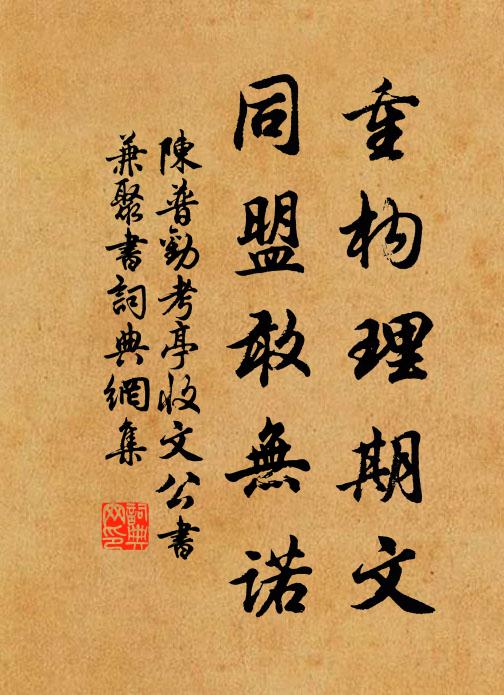 重构理期文
同盟敢無諾
陳普勸考亭收文公書
兼聚書詞典網集
詞典
网印